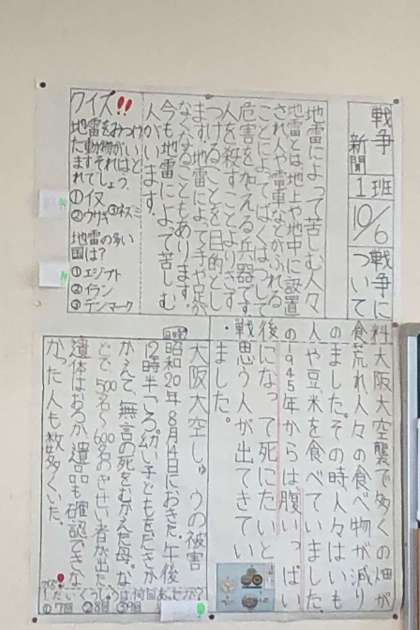 戦争
新聞
1班
10/6
戦争に
ついて
地雷によって苦しむ人々
地雷とは地上や地中に設置
され人や雷車などがふれる
ことによってばくはつして
危害を加える兵器です
人を殺すことよりきず
つけることを目的とし
ます。地雷によって手や足が
なくなることもあります。
今も地雷によって苦しむ
人がいます。
クイズ!!
地雷をみつけ
た動物がいる
ますそれはど
れでしょう。
①イヌ
②ウサギ ③ネズミ
地雷の多い
国は?
①エジプト
②イラン
③デンマーク
食料 大阪大空襲で多くの畑が
荒れ人々の食べ物が減り
のました。その時人々はいも
人や豆米を食べていました。
の1945年からは腹いっぱい
後になって死にたいと
戦思う人が出てきてい
ました。
大阪大空しゅうの被害
昭和20年8月14日におきた。午後
12時半ころ。幼い子どもをだきか
かえて、無言の死をむかえた母。な
どで500名~600名のぎせい者が出た。
遺体はおろか、遺品も確認できな
かった人も数多くいた。
①7回 ②8回 ③9回